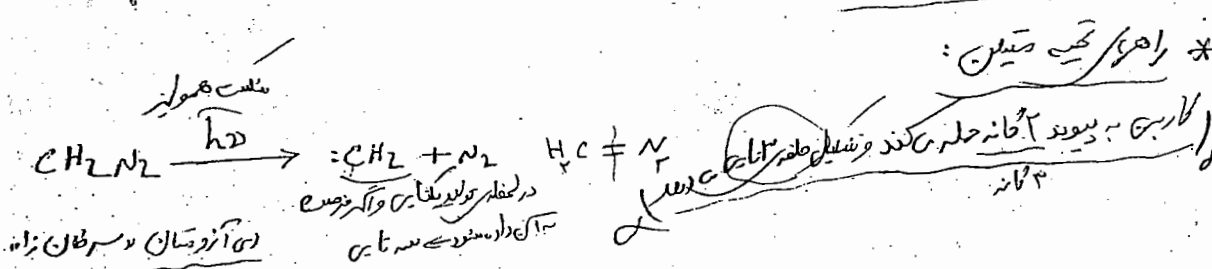 * راههای تهیه متیلن :
کاربن به پیوند ۲ گانه حمله می‌کند و تشکیل حلقه ۳ تایی می‌دهد
۳ گانه
شکست همولیز
CH2N2 hν → :CH2 + N2 H2C ╪ N2
در لحظه‌ی تولید یکتایی و اگر فرصت
به آن داده شود سه تایی
دی آزومتان سرطان زا